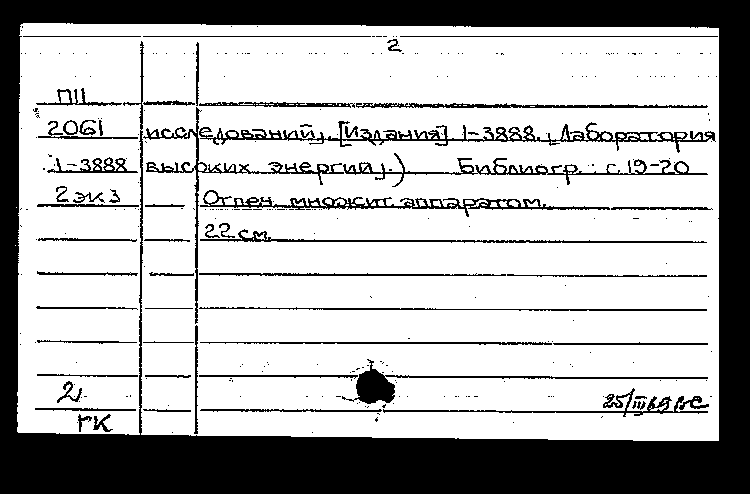 2
П11
2061 исследований,. [Издания] 1-3888., Лаборатория
1-3888 высоких энергий,.) Библиогр.: с. 19-20
2 экз Отпеч. множит. аппаратом.
22 см.
2
25/III 69
ГК